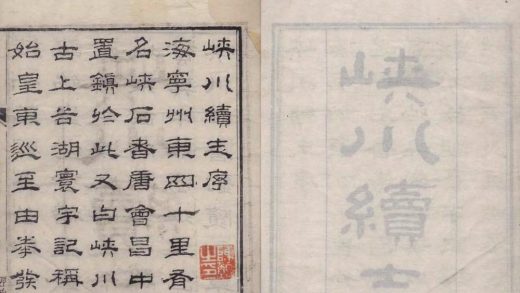 峽川續志
峽川續志序
海寧州東四十里有
名峽石者唐會昌中
置鎮於此又曰峽川
古上谷湖寰宇記稱
始皇東巡至由拳發